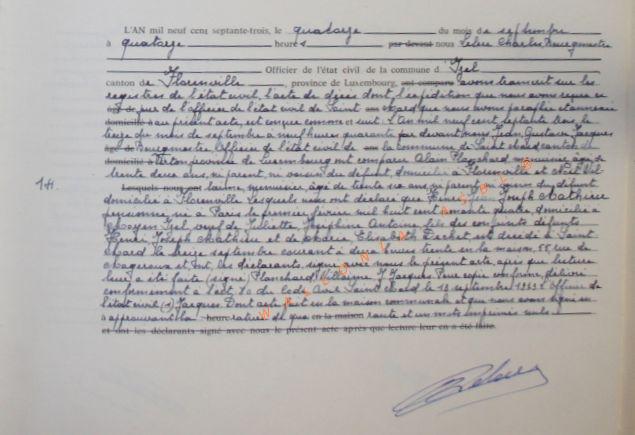 L'AN mil neuf cent septante-trois, le quatorze du mois de septembre
à quatorze heures par devant nous Lebre Charles, Bourgmestre
Officier de l'état civil de la commune d'Izel
canton de Florenville, province de Luxembourg, ont comparu avons transcrit sur les
registres de l'état civil, l'acte de décès dont l'expédition que nous avons reçue ce
jour de l'officier de l'état civil de Saint Mard que nous avons paraphé et annexé
domicilié à au présent acte, est conçue comme suit: L'An mil neuf cent septante trois, le
treize du mois de septembre à neuf heures quarante par devant nous Jean, Gustave Jacques
âgé de Bourgmestre Officier de l'état civil de la commune de Saint Mard canton de
domicilié à Virton province de Luxembourg ont comparu Alain Planchard menuisier âgé de
trente deux ans, ni parent, ni voisin du défunt, domicilié à Florenville et
14.
Lesquels nous ont menuisier, âgé de trente ans, ni parent ni voisin du défunt
domicilié à Florenville Lesquels nous ont déclaré que Jean Joseph Mathieu
pensionné, né à Paris le premier février mil huit cent nonante quatre domicilié à
Moyen Izel, veuf de Juliette Joséphine Antoine, fils des conjoints défunts
Joseph Mathieu et de Marie Elisabeth est décédé à Saint
Mard le treize septembre courant à deux heures trente en la maison, 55, rue de
Mageroux et ont, les déclarants, signé avec nous le présent acte, après que lecture
leur a été faite (signé) Planchard, Villaume, J. Jacques Pour copie conforme, délivré
conformément à l'art. 80 du Code Civil Saint Mard le 13 septembre 1973 L'Officier de
l'état civil (s) Jacques. Dont acte fait en la maison communale et que nous avons signé en
approuvant la heure rature de en la maison et un mots imprimés nuls
et ont les déclarants signé avec nous le présent acte après que lecture leur en a été faite.